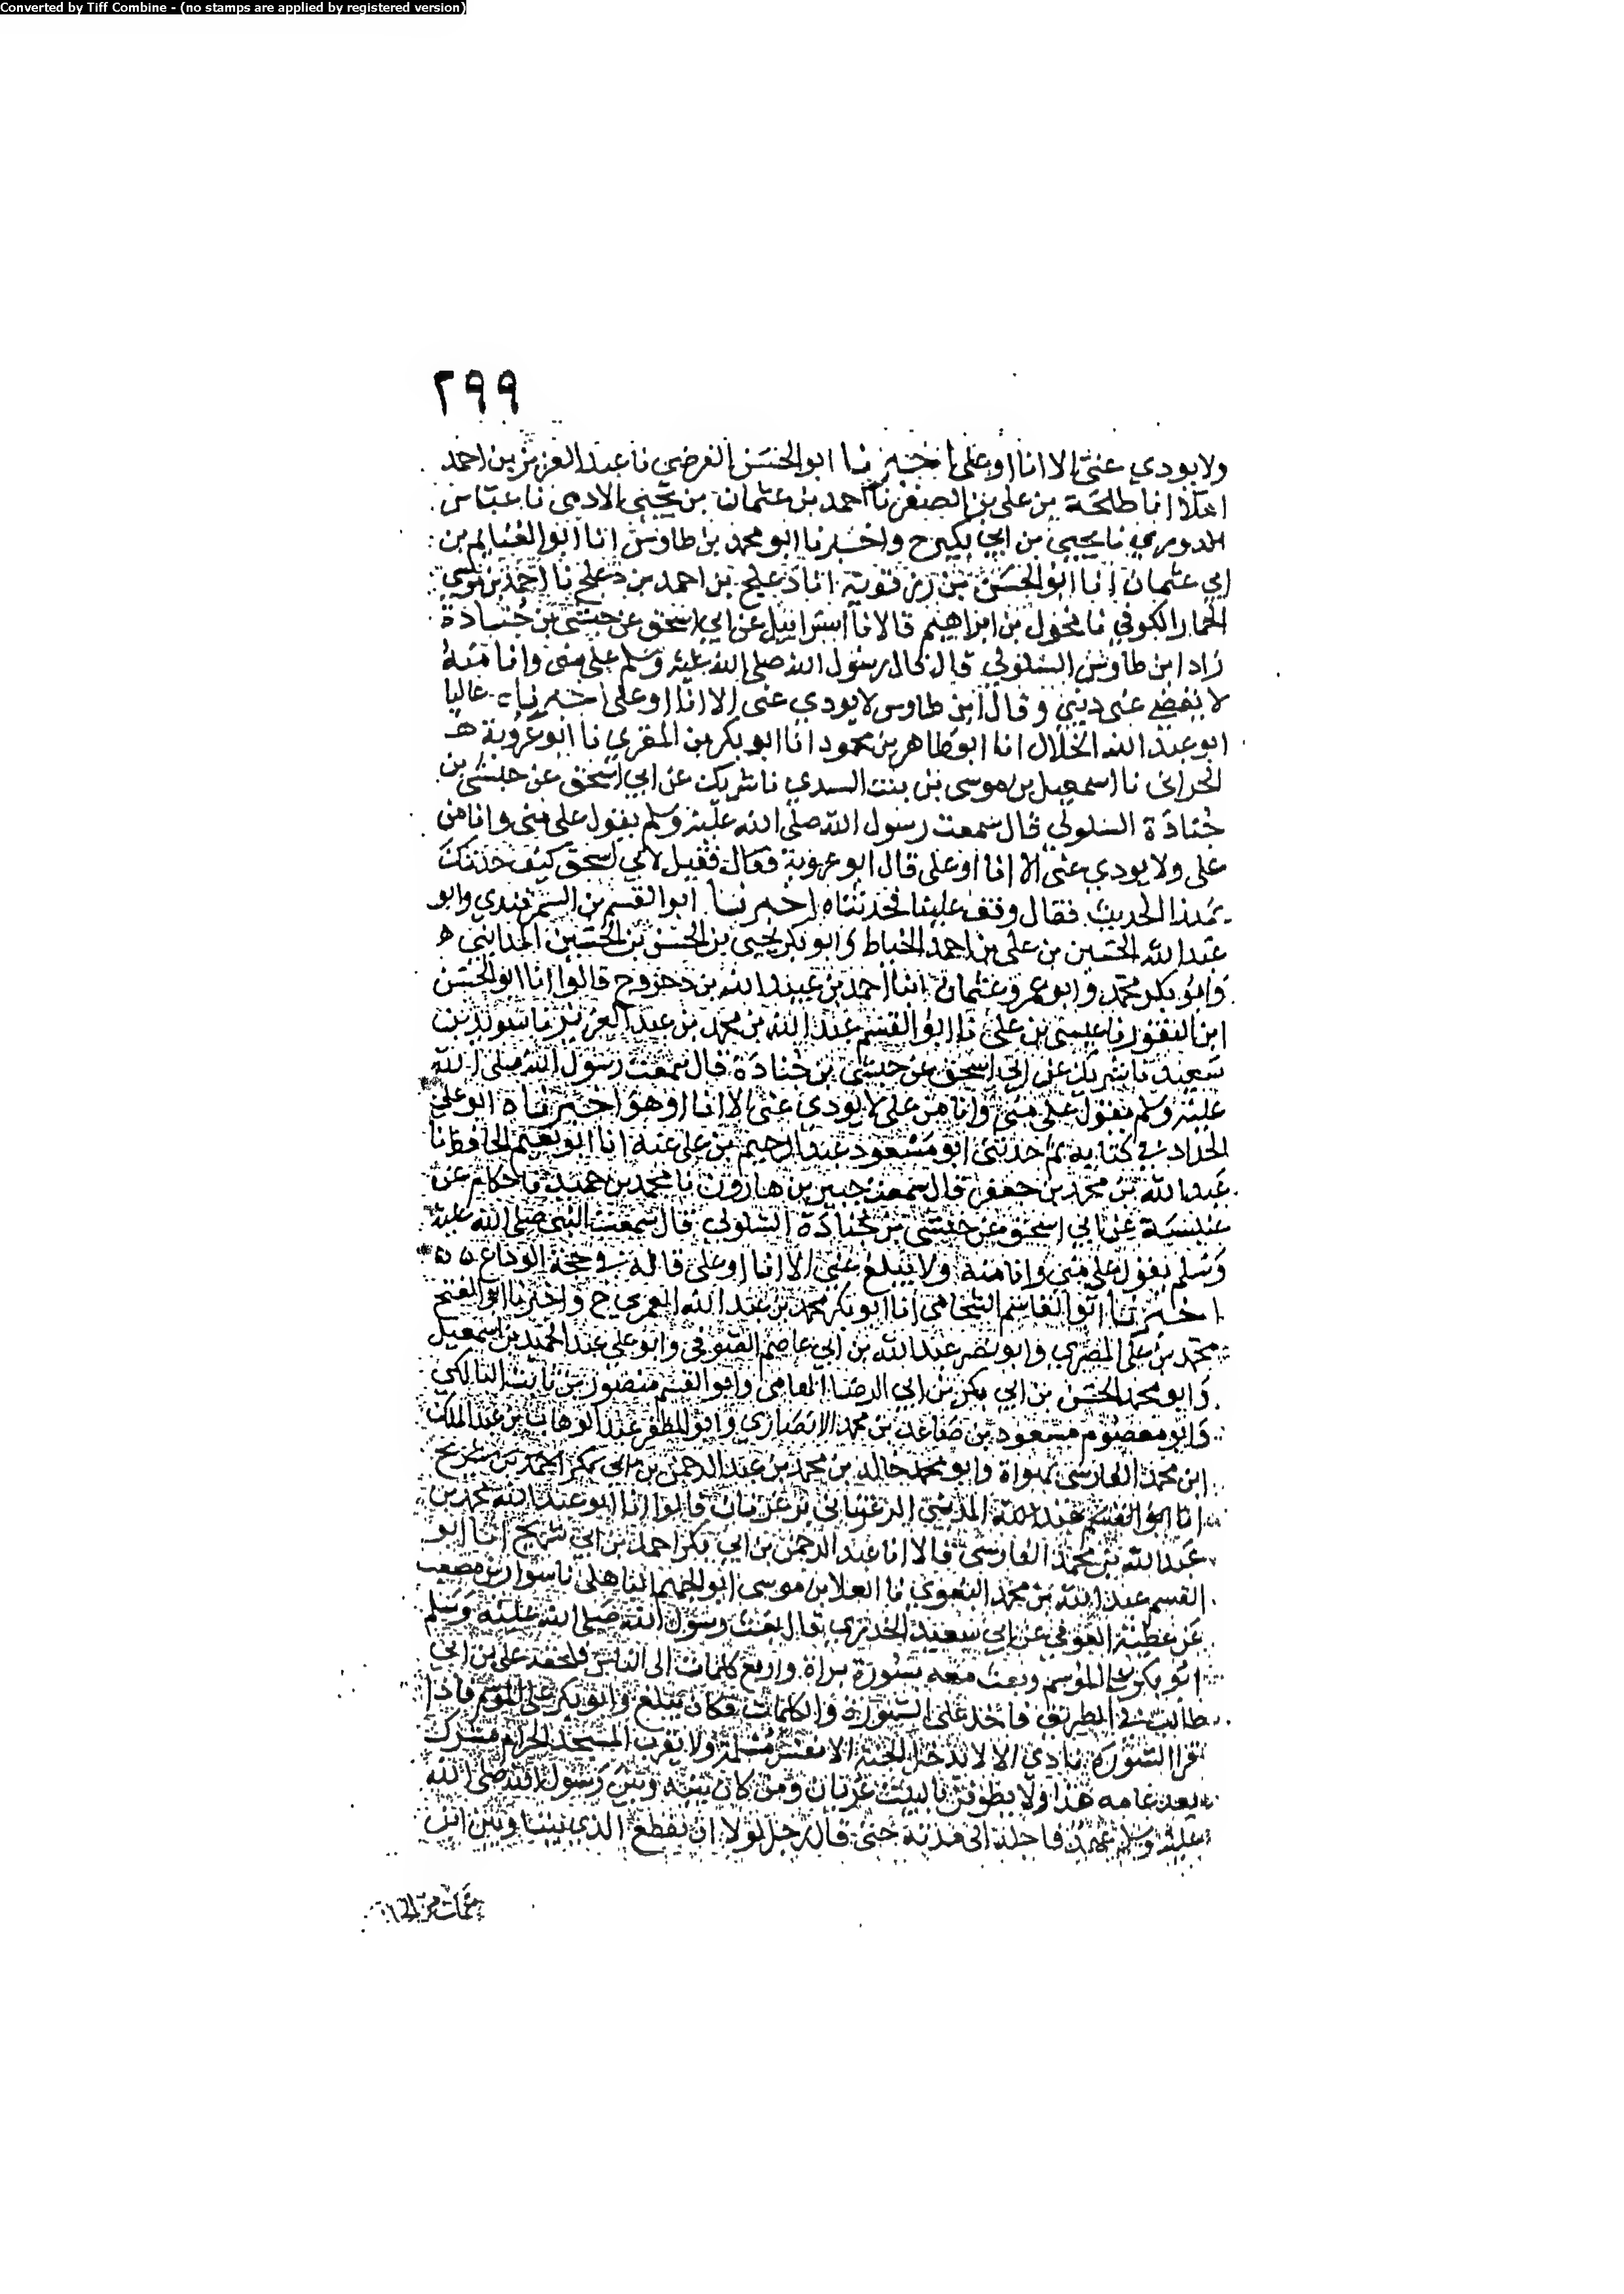 Converted by Tiff Combine - (no stamps are applied by registered version)
٢٩٩
ولا يودي عني الا انا او علي اخبرنا ابو الحسن الفرضي نا عبد العزيز بن احمد
املا انا طلحة بن علي بن الصقر نا احمد بن عثمان بن يحيى الادمي نا عباس
الدوري نا يحيى بن ابي بكير ح واخبرنا ابو محمد بن طاوس انا ابو الغنايم بن
ابي عثمان انا ابو الحسن بن رزقوية انا دعلج بن احمد بن دعلج نا احمد بن موسى
الحمار الكوفي نا مخول بن ابراهيم قالا نا اسرائيل عن ابي اسحق عن حبشي بن جنادة
زاد ابن طاوس السلولي قال قال رسول الله صلى الله عليه وسلم علي مني وانا منه
لا يقضي عني ديني وقال ابن طاوس لا يودي عني الا انا او علي اخبرنا عاليا
ابو عبد الله الخلال انا ابو طاهر بن محمود انا ابو بكر بن المقري نا ابو عروبة
الحراني نا اسمعيل بن موسى بن بنت السدي نا شريك عن ابي اسحق عن حبشي بن
جنادة السلولي قال سمعت رسول الله صلى الله عليه وسلم يقول علي مني وانا من
علي ولا يودي عني الا انا او علي قال ابو عروبة فقال فقيل لابي اسحق كيف حدثك
بهذا الحديث فقال وقف علينا فحدثناه اخبرنا ابو القسم بن السمرقندي وابو
عبد الله الحسين بن علي بن احمد الخياط وابو بكر يحيى بن الحسن بن الحسين المدائني
وابو بكر محمد وابو عمرو عثمان ابنا احمد بن عبيد الله بن دحروج قالوا انا ابو الحسن
ابن النقور نا عيسى بن علي نا ابو القسم عبد الله بن محمد بن عبد العزيز نا سويد بن
سعيد نا شريك عن ابي اسحق عن حبشي بن جنادة قال سمعت رسول الله صلى الله
عليه وسلم يقول علي مني وانا من علي لا يودي عني الا انا او هو اخبرناه ابو علي
الحداد في كتابه ثم حدثني ابو مسعود عبد الرحيم بن علي عنه انا ابو نعيم الحافظ نا
عبد الله بن محمد بن جعفر قال سمعت جبير بن هارون نا محمد بن حميد نا حكام عن
عنبسة عن ابي اسحق عن حبشي بن جنادة السلولي قال سمعت النبي صلى الله عليه
وسلم يقول علي مني وانا منه ولا يبلغ عني الا انا او علي قاله في حجة الوداع
اخبرنا ابو القاسم الشحامي انا ابو بكر محمد بن عبد الله العمري ح واخبرنا ابو الفتح
محمد بن علي المصري وابو نصر عبد الله بن ابي عاصم الصوفي وابو علي عبد الحميد بن اسمعيل
وابو محمد الحسن بن ابي بكر بن ابي الرضا وابو القسم منصور بن ثابت
وابو معصوم مسعود بن صاعد بن محمد الانصاري وابو المظفر عبد الوهاب بن عبد الملك
ابن محمد الفارسي بهراة وابو محمد خالد بن محمد بن عبد الرحمن
انا ابو القسم قالوا انا ابو عبد الله محمد بن
عبد الله بن محمد الفارسي قالا انا عبد الرحمن بن ابي بكر احمد بن ابي شريح انا ابو
القسم عبد الله بن محمد البغوي نا العلا بن موسى ابو الجهم الباهلي نا سوار بن مصعب
عن عطية العوفي عن ابي سعيد الخدري قال بعث رسول الله صلى الله عليه وسلم
ابو بكر على الموسم وبعث معه بسورة براة واربع كلمات الى الناس فلحقه علي بن ابي
طالب في الطريق فاخذ علي السورة والكلمات فكان يبلغ وابو بكر على الموسم فاذا
قرا السورة نادي الا لا يدخل الجنة الا نفس مسلمة ولا يقرب المسجد الحرام مشرك
بعد عامه هذا ولا يطوفن بالبيت عريان ومن كان بينه وبين رسول الله صلى الله
عليه وسلم عهد فاجله الى مدته حتى قال رجل لولا ان يقطع الذي بيننا وبين ابن